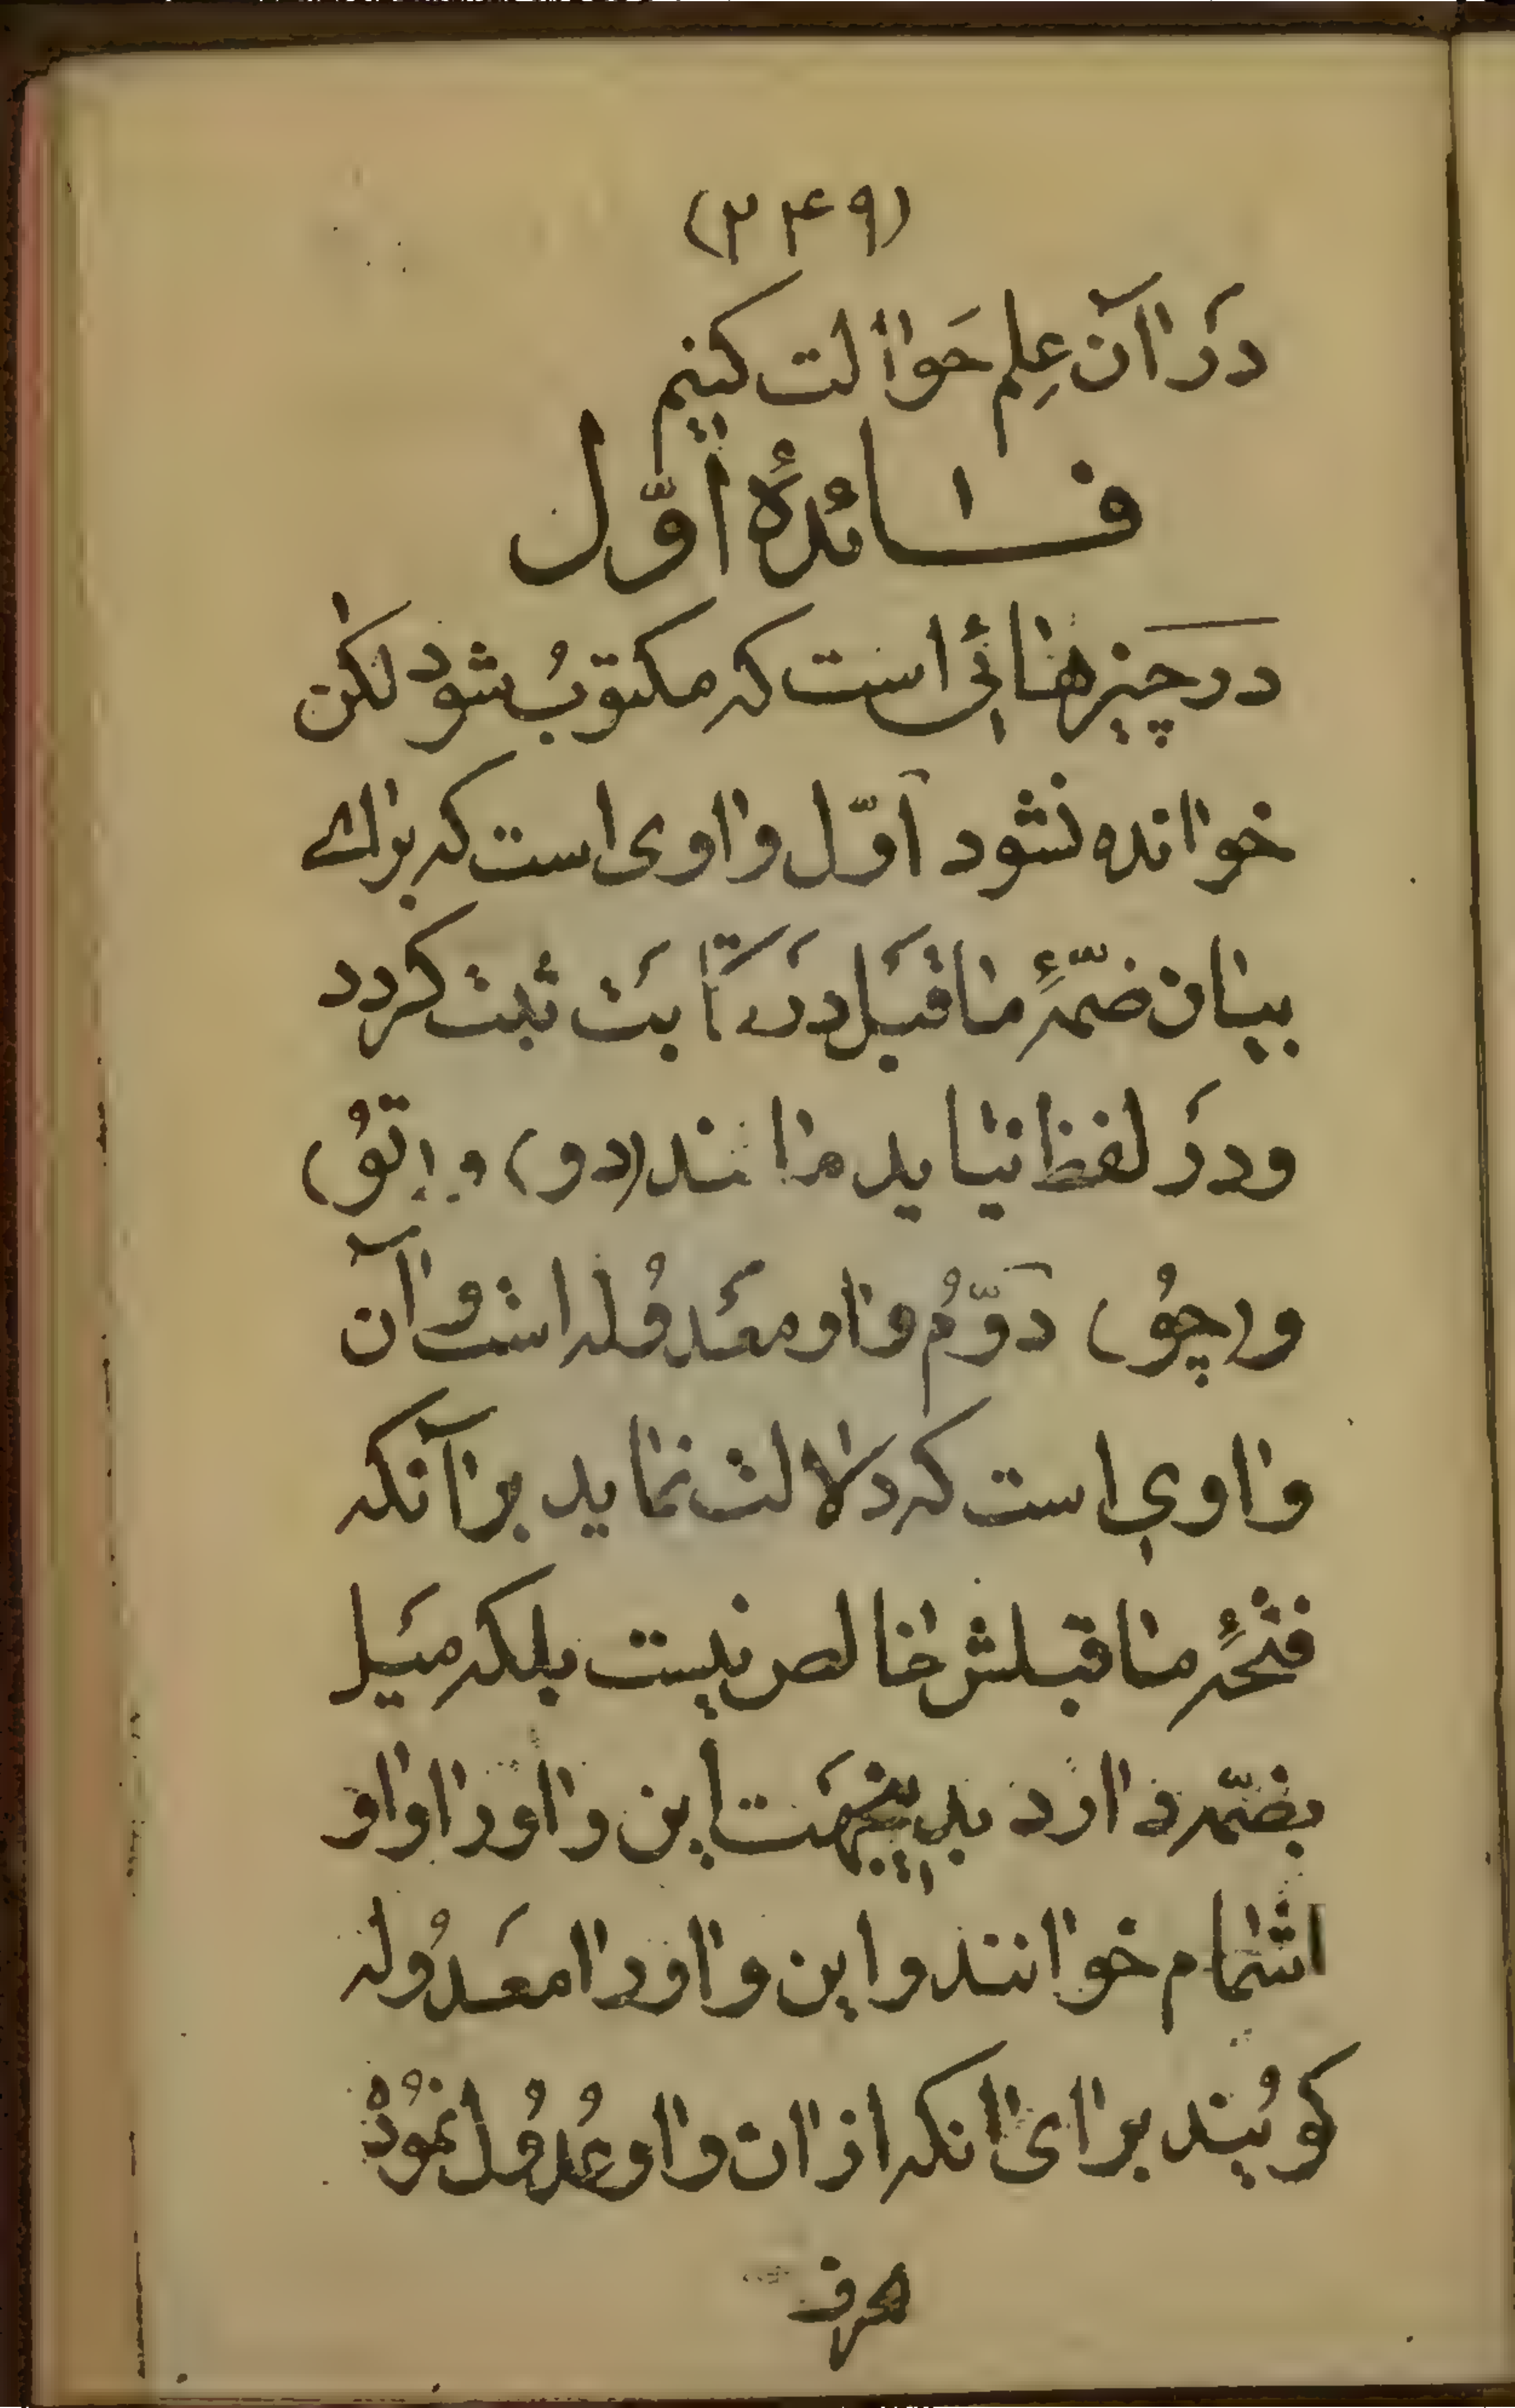 (۲۴۹)
دَر آن عِلم حَوٰالت کنیم
فــائدهٔ اوّل
در چیزهائی است که مکتوبُ شود لکن
خوانده نشود اوّل واوی است که برای
بیان ضمّهٔ ماقبَل دَر کتابَت ثبت کردد
ودر لفظ نیاید مانند (دو) و (توُ)
و (چوُ) دوّمُ واو معَدوُله است و آن
واوی است که دلالت نماید بر آنکه
فتحهٔ ماقبلش خالص نیست بلکه میَل
بضمّه دارد بدینجهَت این واو را واو
اشمام خوانند و این واو را معَدوُله
کویُند برای انکه از ان واو عُدوُل نموُدْه
بحرف